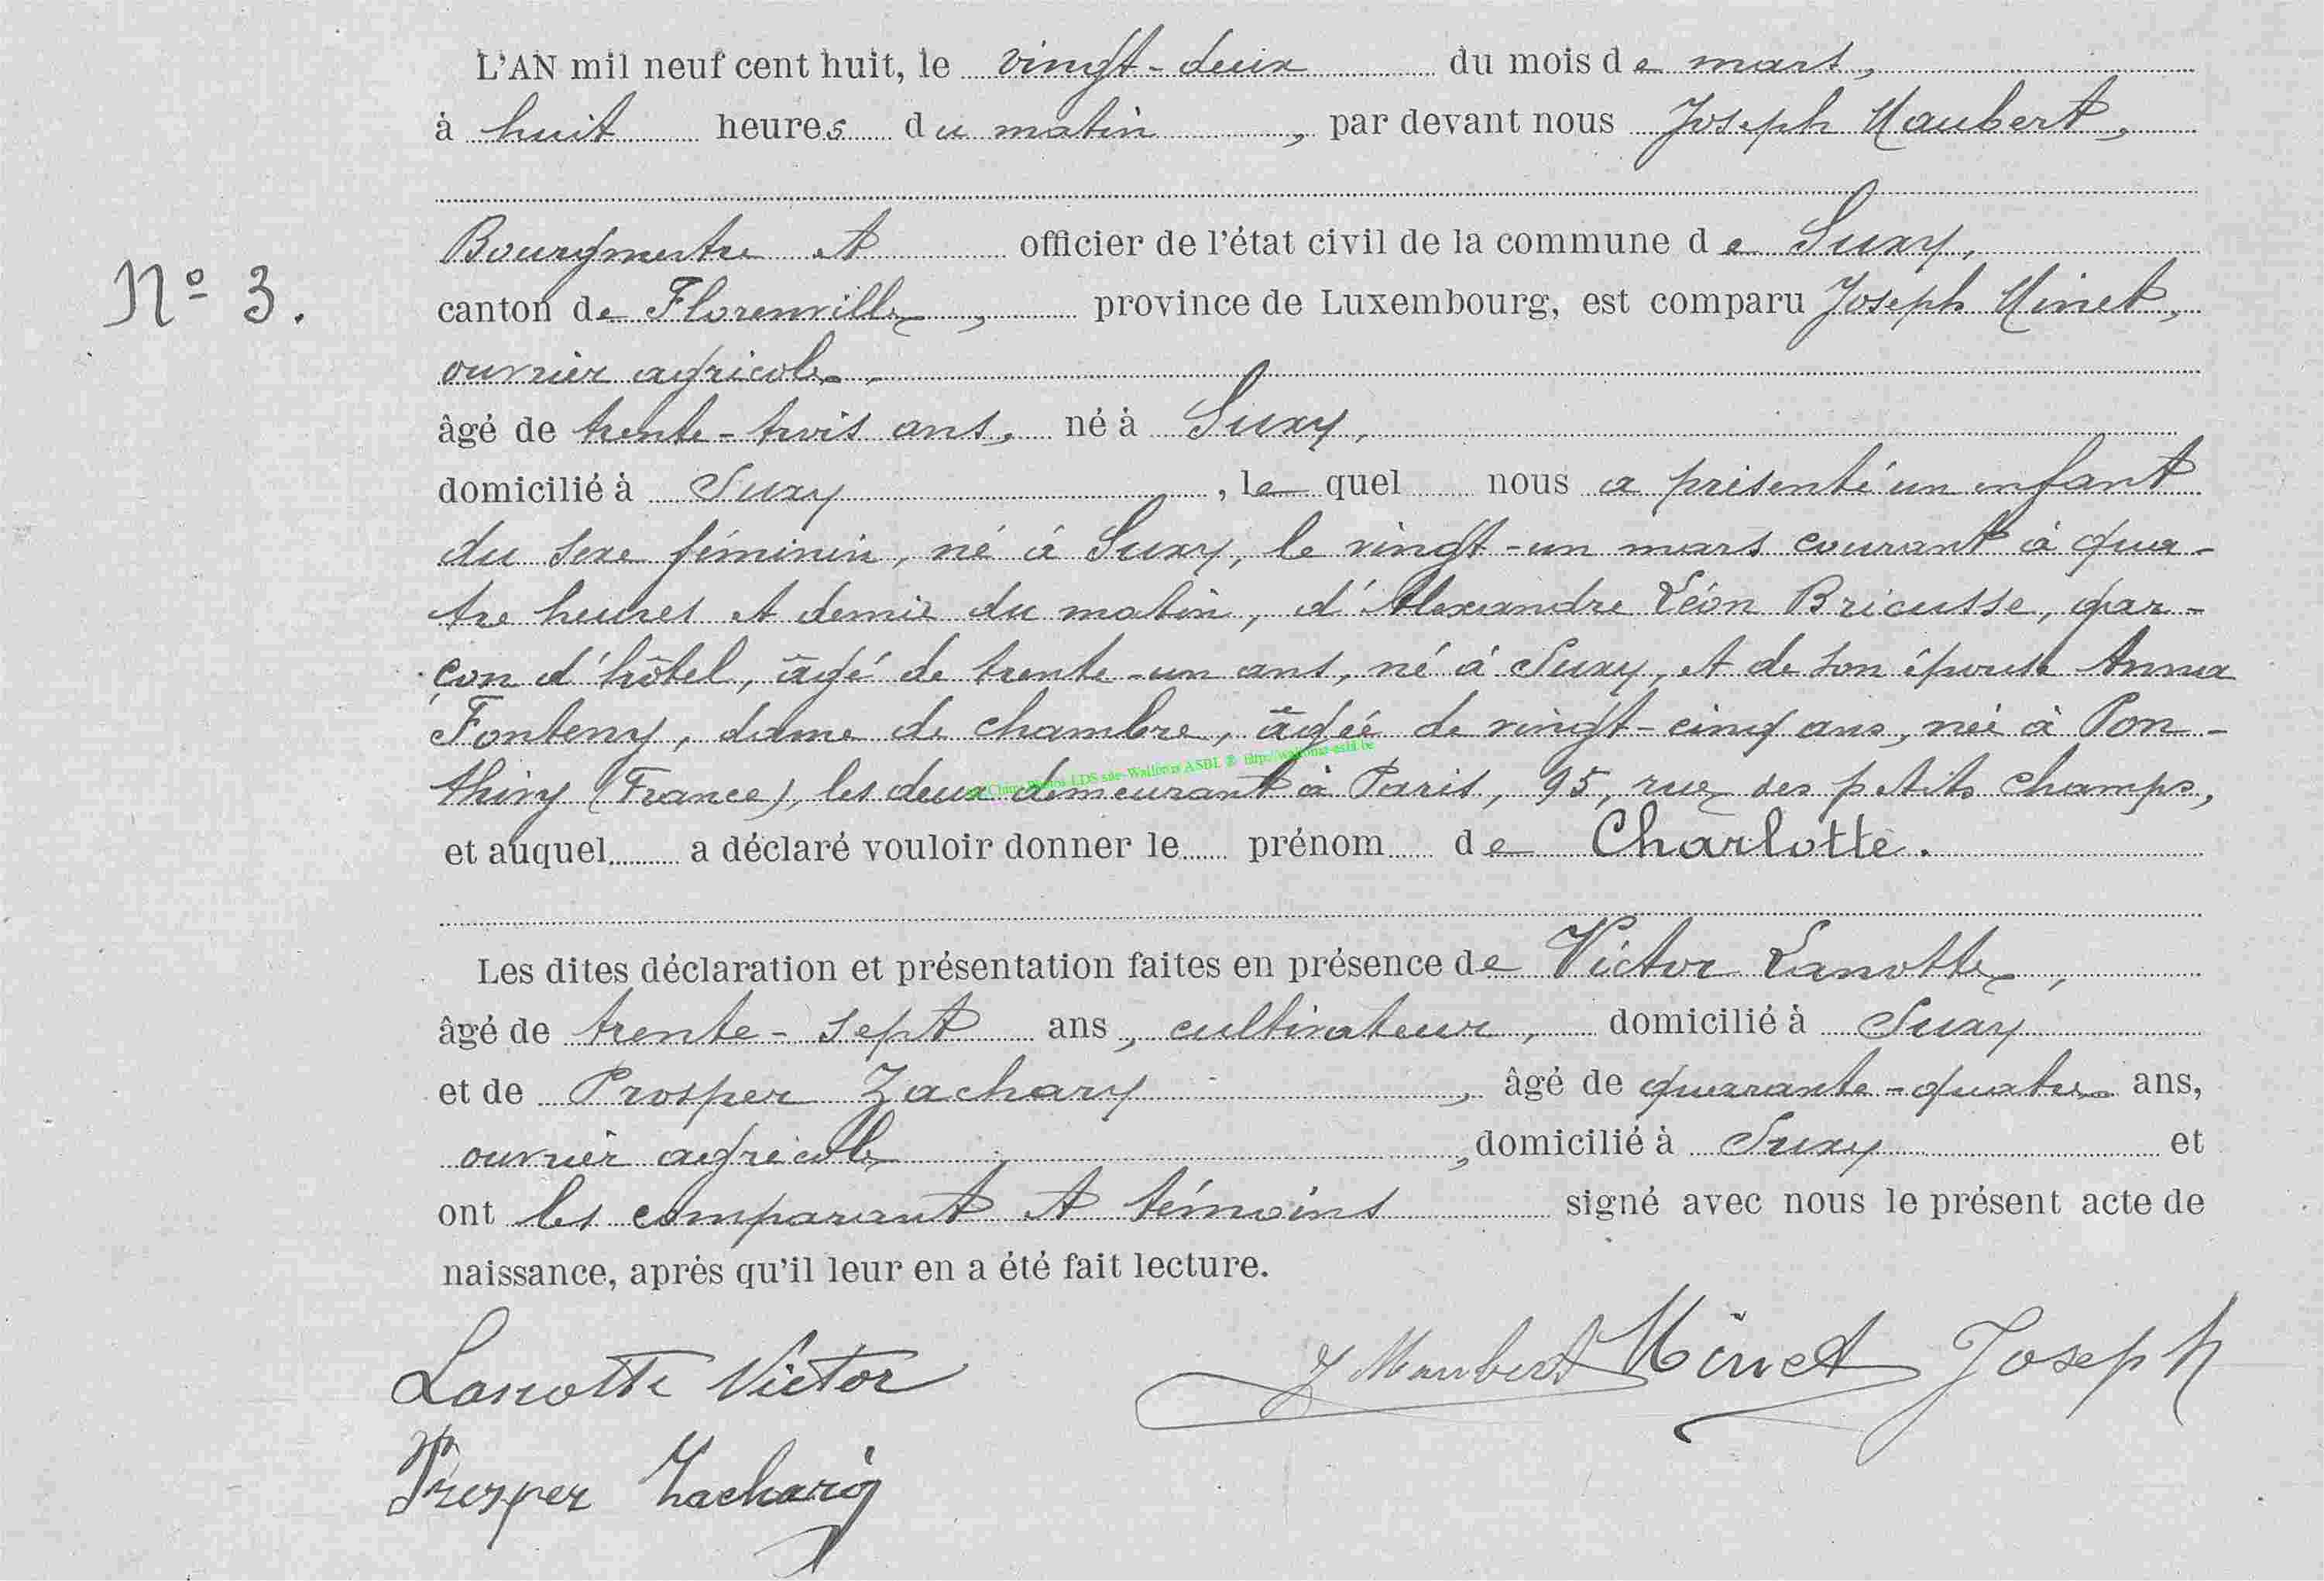 L'AN mil neuf cent huit, le vingt-deux du mois de mars,
à huit heures du matin, par devant nous Joseph Maubert,
Bourgmestre et officier de l'état civil de la commune de Suxy,
N° 3.
canton de Florenville, province de Luxembourg, est comparu Joseph Minet,
ouvrier agricole,
âgé de trente-trois ans, né à Suxy,
domicilié à Suxy, lequel nous a présenté un enfant
du sexe féminin, né à Suxy, le vingt-un mars courant à qua-
tre heures et demie du matin, d'Alexandre Léon Bricusse, gar-
çon d'hôtel, âgé de trente-un ans, né à Suxy, et de son épouse Anna
Fonteny, dame de chambre, âgée de vingt-cinq ans, née à Pon-
thiry (France), les deux demeurant à Paris, 95, rue des petits champs,
et auquel a déclaré vouloir donner le prénom de Charlotte.
Les dites déclaration et présentation faites en présence de Victor Lanotte,
âgé de trente-sept ans, cultivateur, domicilié à Suxy
et de Prosper Zachary, âgé de quarante-quatre ans,
ouvrier agricole, domicilié à Suxy et
ont les comparant et témoins signé avec nous le présent acte de
naissance, après qu'il leur en a été fait lecture.
Lanotte Victor J Maubert Minet Joseph
Prosper Zachary